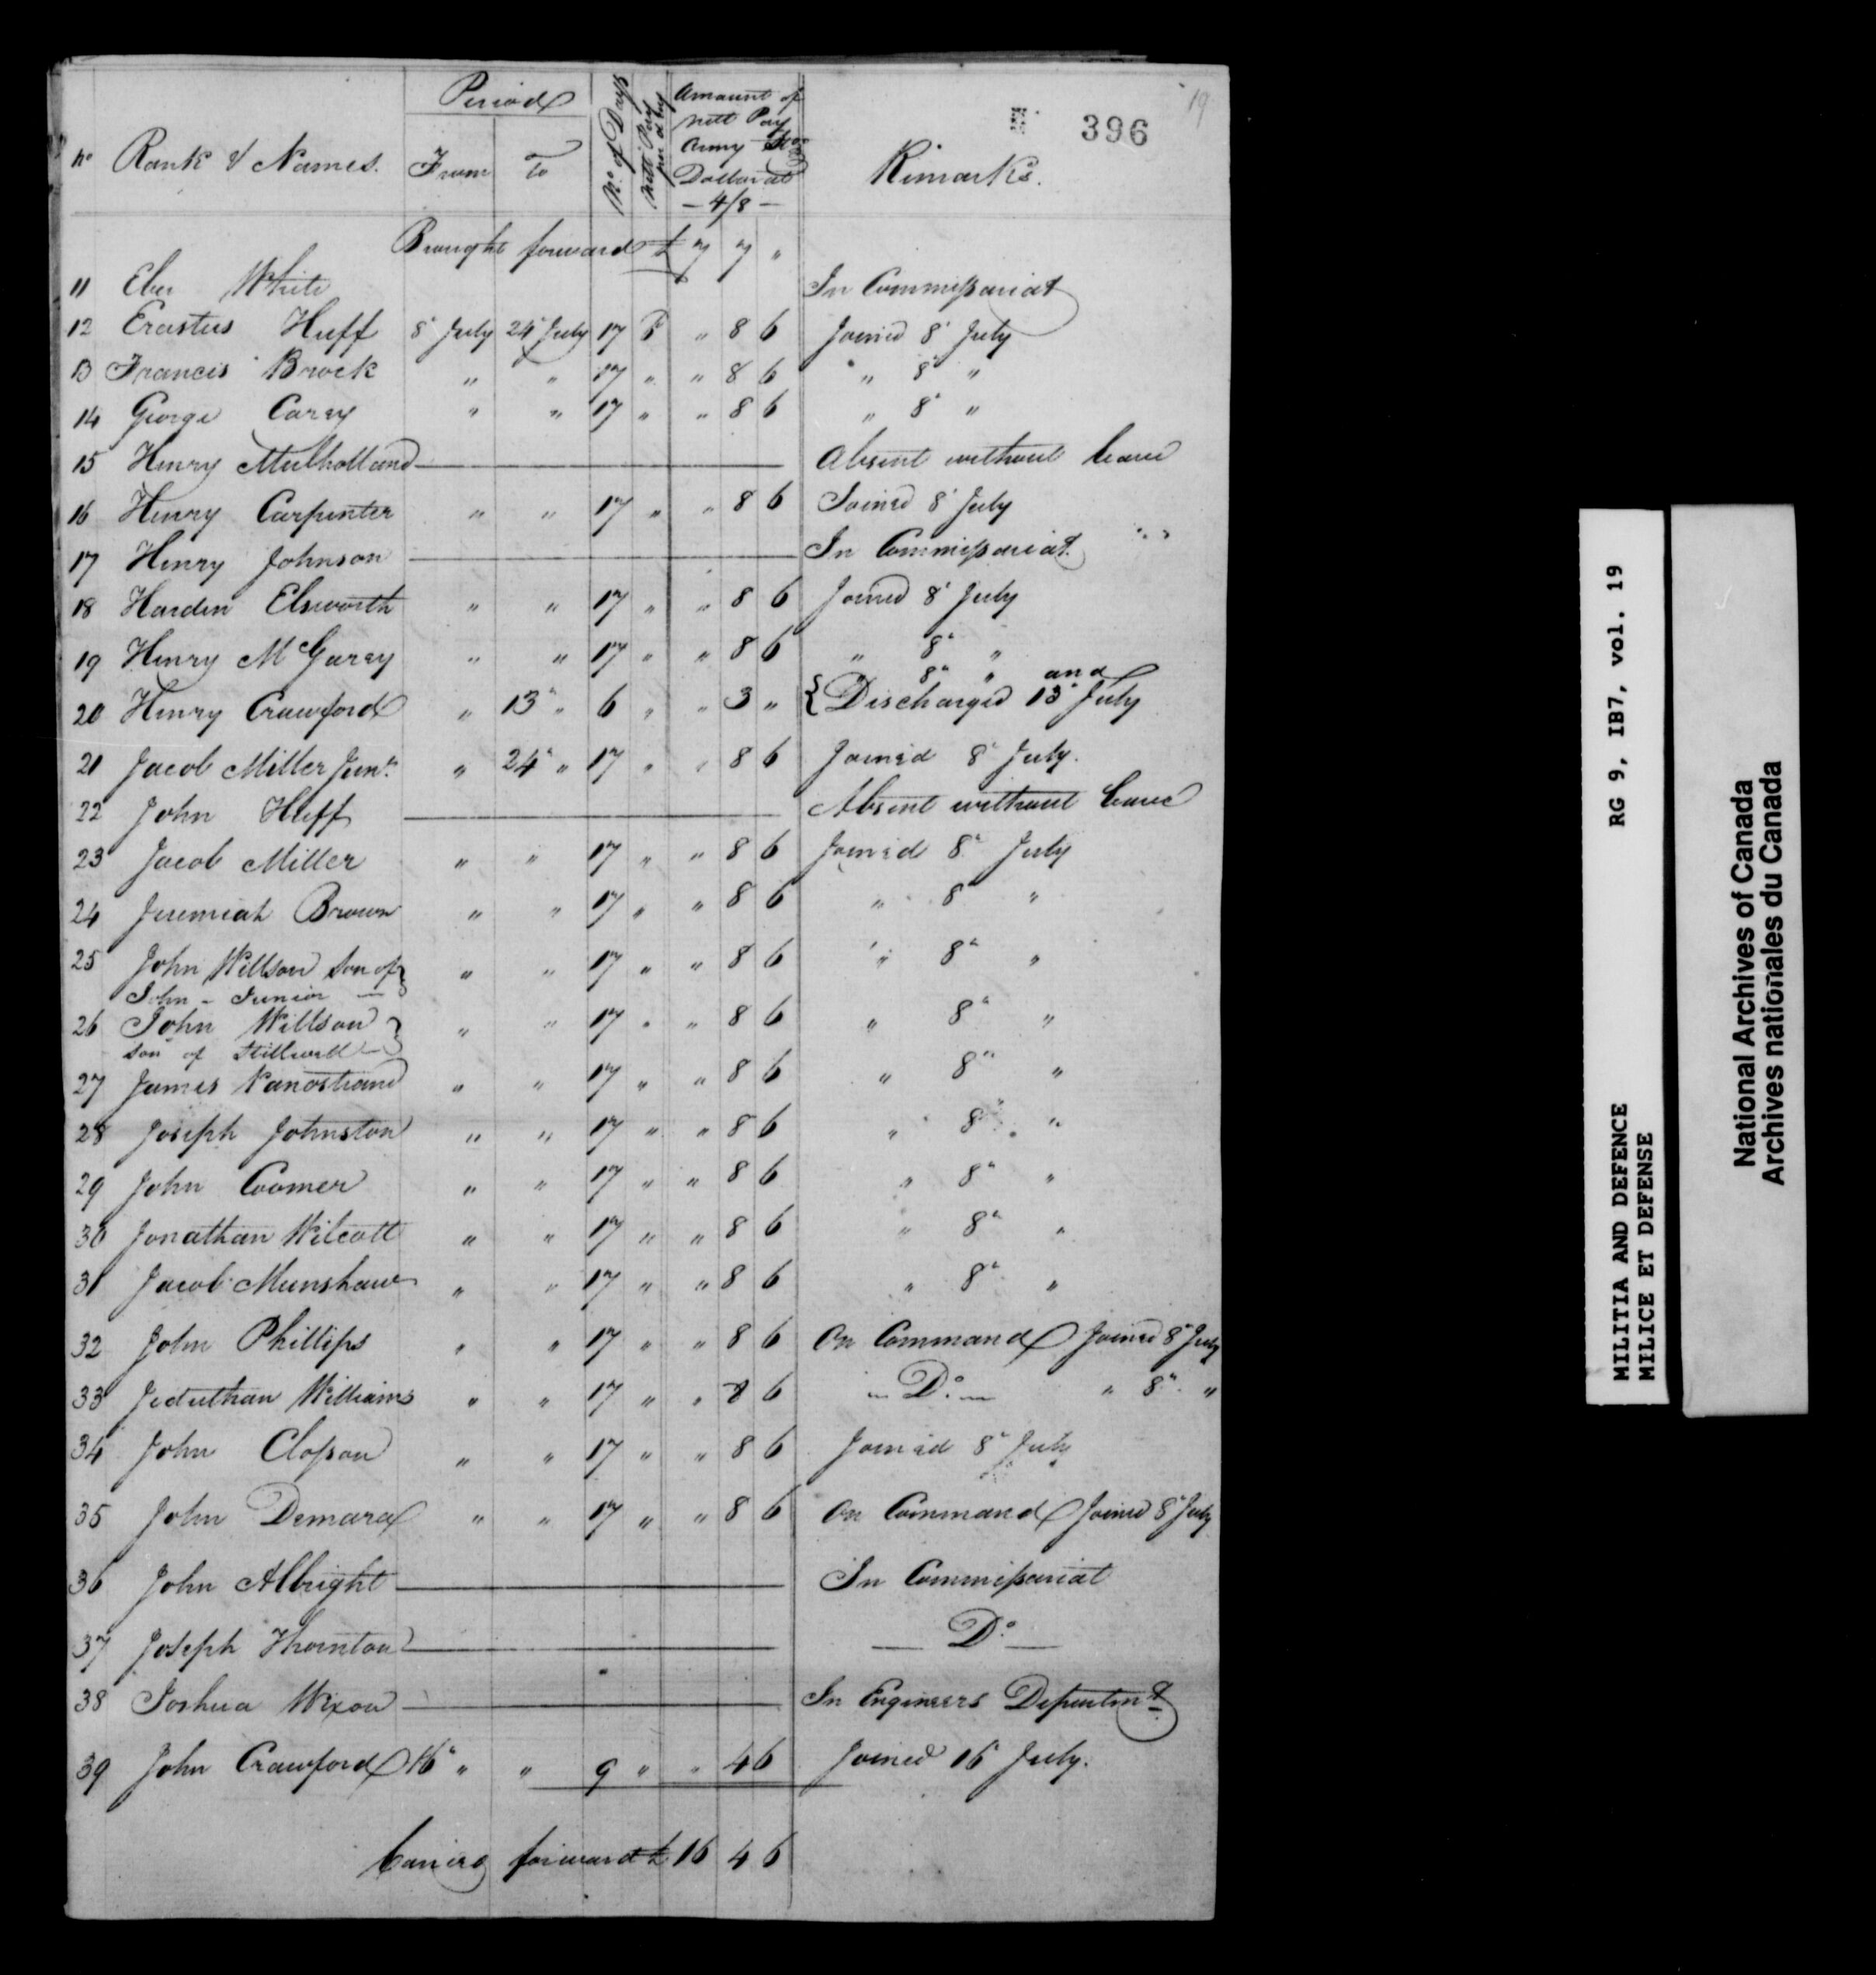 19
396
No Rank & Names. Period From To No. of Days Nett Pay per day Amount of nett Pay Army Dollar at 4/8 Remarks.
Brought forward £ 7 7 "
11 Eber White In Commissariat
12 Erastus Huff 8 July 24 July 17 6 " 8 6 Joined 8 July
13 Francis Brock " " 17 " " 8 6 " 8 "
14 George Carey " " 17 " " 8 6 " 8 "
15 Henry Mulholland — Absent without leave
16 Henry Carpenter " " 17 " " 8 6 Joined 8 July
17 Henry Johnson — In Commissariat
18 Harden Elsworth " " 17 " " 8 6 Joined 8 July
19 Henry McGarey " " 17 " " 8 6 " 8 "
20 Henry Crawford " 13 " 6 " " 3 " { 8 " and
Discharged 13 July
21 Jacob Miller Junr. " 24 " 17 " " 8 6 Joined 8 July.
22 John Huff — Absent without leave
23 Jacob Miller " " 17 " " 8 6 Joined 8 July
24 Jeremiah Brown " " 17 " " 8 6 " 8 "
25 John Willson son of } " " 17 " " 8 6 " 8 "
John - Junior —
26 John Willson } " " 17 " " 8 6 " 8 "
son of Stillwell —
27 James Vanostrand " " 17 " " 8 6 " 8 "
28 Joseph Johnston " " 17 " " 8 6 " 8 "
29 John Coomer " " 17 " " 8 6 " 8 "
30 Jonathan Wilcott " " 17 " " 8 6 " 8 "
31 Jacob Munshaw " " 17 " " 8 6 " 8 "
32 John Phillips " " 17 " " 8 6 On Command Joined 8 July
33 Jeduthan Williams " " 17 " " 8 6 — Do — " 8 "
34 John Closson " " 17 " " 8 6 Joined 8 July
35 John Demara " " 17 " " 8 6 On Command Joined 8 July
36 John Albright — In Commissariat
37 Joseph Thornton — — Do —
38 Joshua Wixon — In Engineers Departmt.
39 John Crawford 16 " " 9 " " 4 6 Joined 16 July.
Carried forward £ 16 4 6
MILITIA AND DEFENCE RG 9, IB7, vol. 19
MILICE ET DEFENSE
National Archives of Canada
Archives nationales du Canada